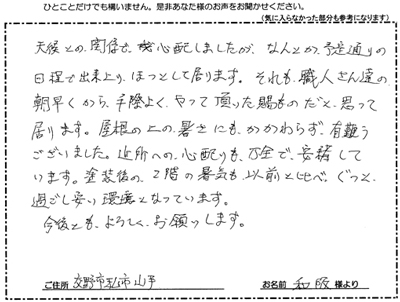 ひとことだけでも構いません。是非あなた様のお声をお聞かせください。
(気に入らなかった部分も参考になります)
天候との関係で、心配しましたが、なんとか、予定通りの
日程で出来上り、ほっとして居ります。それも、職人さん達の
朝早くから、手際よく、やって頂った賜ものだと、思って
居ります。屋根の上の暑さにも、かかわらず、有難う
ございました。近所への、心配りも、万全で、安緒して
います。塗装後の、2階の暑気も、以前と比べ、ぐっと、
過ごし安い環境となっています。
今後とも、よろしく、お願いします。
ご住所 交野市私市山手 お名前 和阪 様より